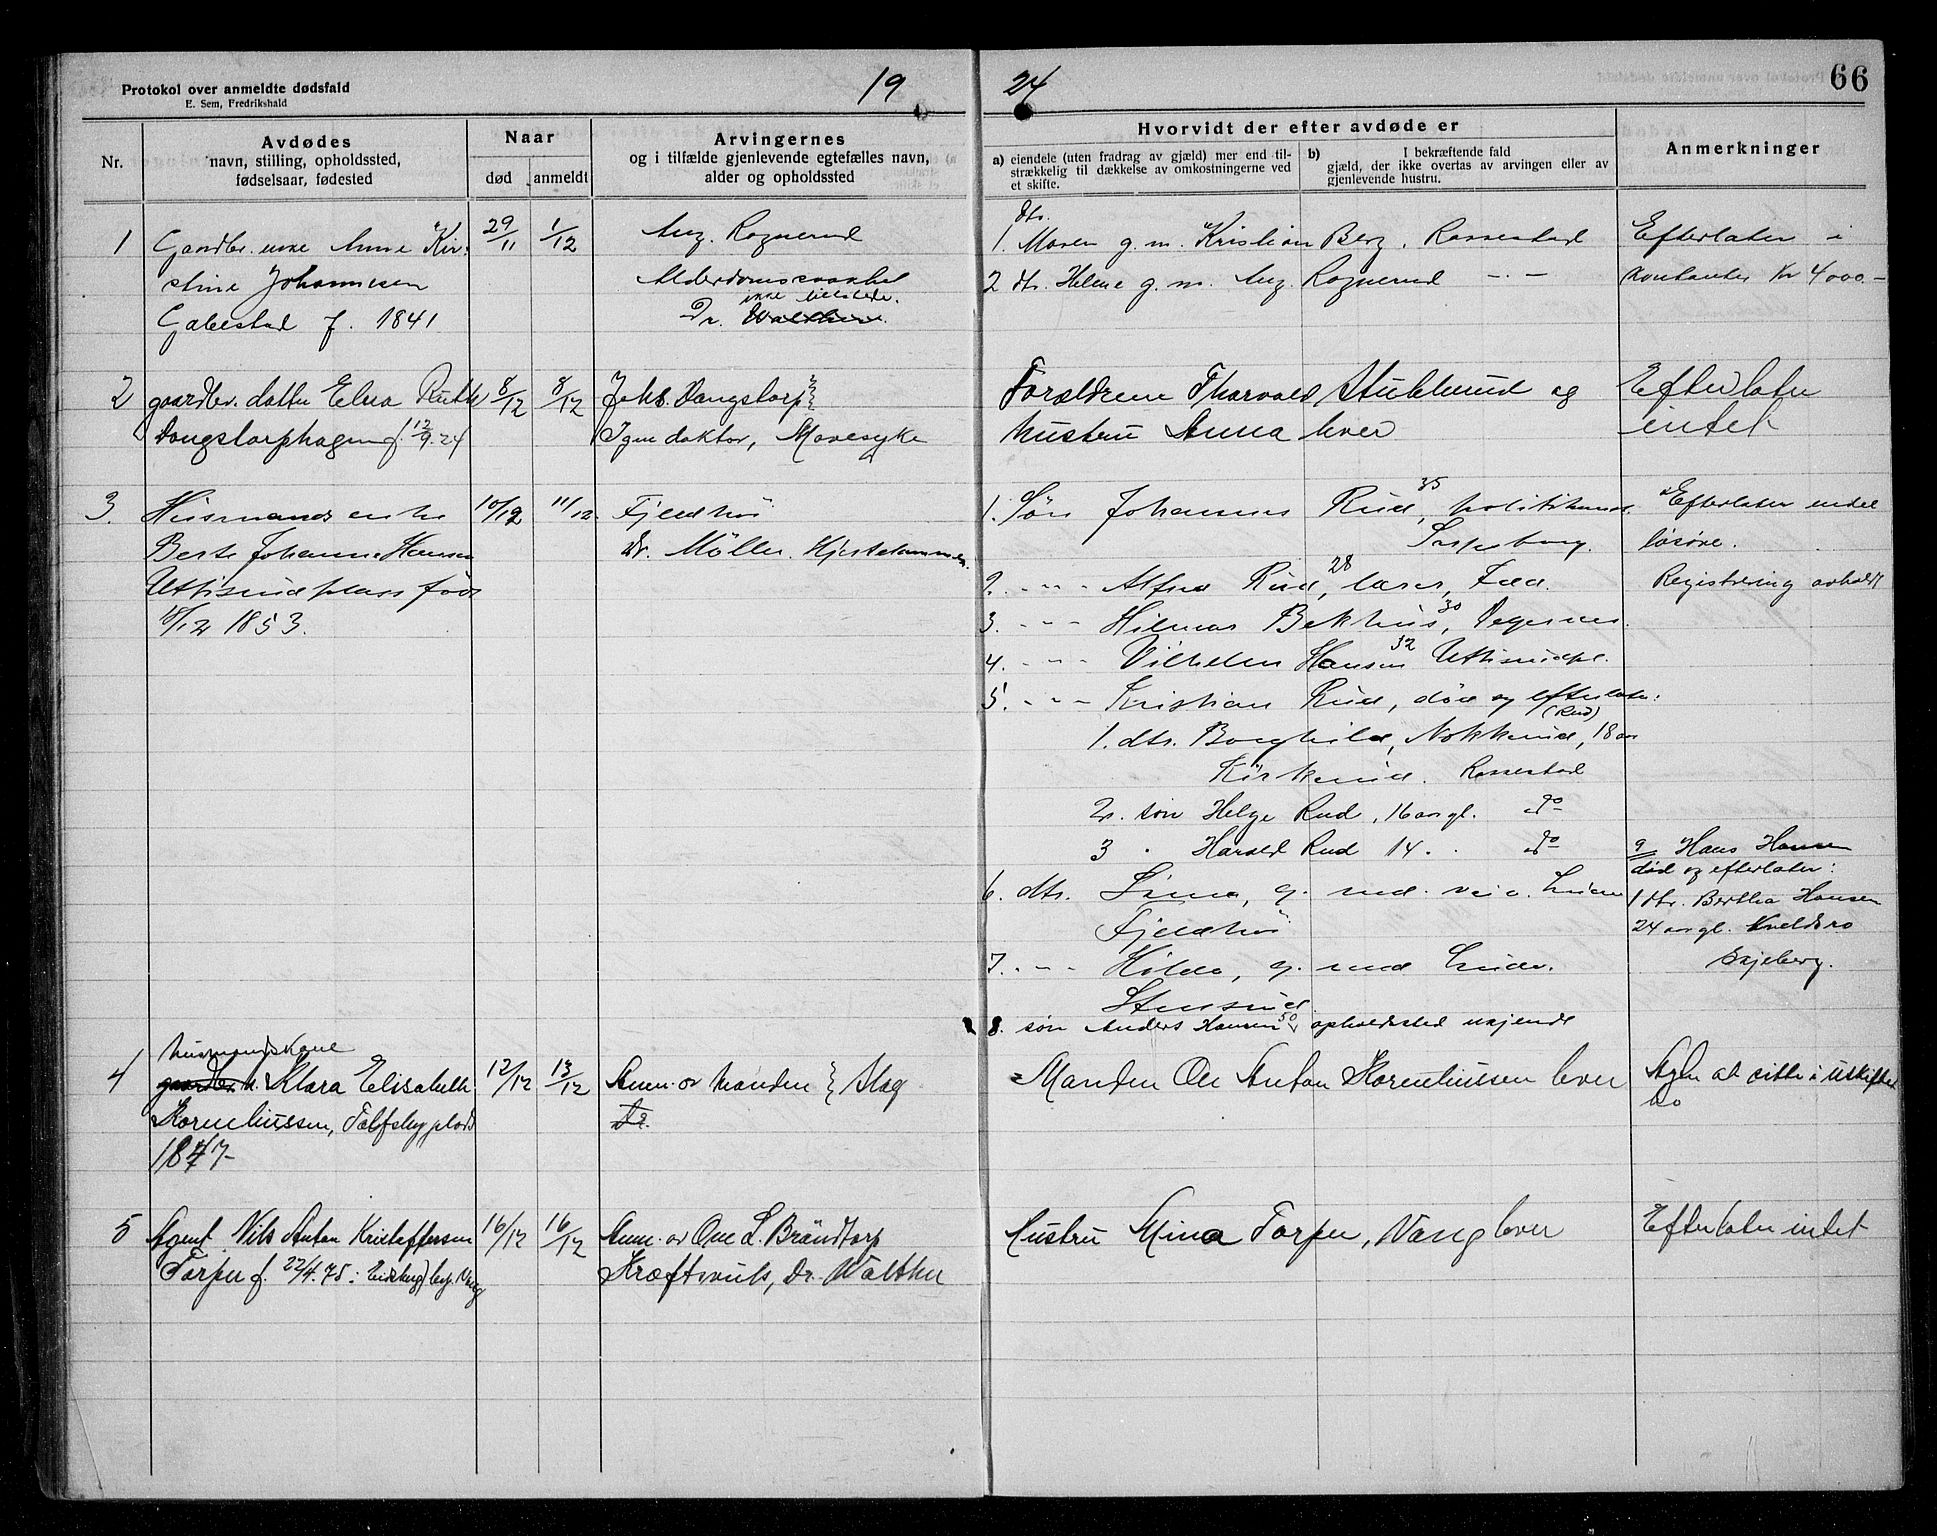 Protokol over anmeldte dødsfald
E. Sem, Fredrikshald
19
24
66
Nr.
Avdødes
navn, stilling, opholdssted,
fødselsaar, fødested
Naar
død
anmeldt
Arvingernes
og i tilfælde gjenlevende egtefælles navn,
alder og opholdssted
Hvorvidt der efter avdøde er
a) eiendele (uten fradrag av gjæld) mer end til-
strækkelig til dækkelse av omkostningerne ved
et skifte.
b) I bekræftende fald
gjæld, der ikke overtas av arvingen eller av
gjenlevende hustru.
Anmerkninger
1
Gaardbr. enke Anne Kir-
stine Johannesen
Gabestad f. 1841
29/11
1/12
Aug. Rognerud
Alderdomssvakhet
ikke tilstede.
Dr. Walther.
dtr.
1. Maren g. m. Kristian Berg, Rakkestad
2 dtr. Helene g. m. Aug. Rognerud
Efterlater i
kontanter Kr 4000.-
2
gaardbr. datter Elna Ruth
f. 12/9.24
8/12
8/12
Johs. Dangstorp
Igen doktor, Mavesyke
Forældrene Thorvald Stubberud og
hustru Anna lever
Efterlater
intet
3.
Husmands enke
Berte Johanne Hansen
Uttisrudplass født
1853.
10/12
11/12.
Fjeldhøi
Dr. Møller.
1. Søn Johannes Rud, 35
Sarpsborg.
2. - - - Alfred Rud, 28 lærer,
3. - - - Hilmar Bekhus, 30 Degernes.
4. - - - Vilhelm Hansen 32 Uttisrudpl.
5. - - - Kristian Rud, død og efterlater:
(Rud)
1. dtr. Borghild, Nokkerud, 18 aar
Kirkerud. Rakkestad
2. søn Helge Rud, 16 aar gl. do
3 " Harald Rud 14 " do
6. dtr.
Fjeldhøi
7. - - - Hilda, g. med
Stensrud
8. søn Anders Hansen 50 opholdssted ukjendt
Efterlater endel
løsøre.
Registrering avholdt
9 Hans Hansen
død og efterlater:
1 dtr. Bertha Hansen
24 aar gl. Kveldsro
Skjeberg.
4
husmandskone
gaardbr. k. Klara Elisabeth
Korneliussen,
1847
12/12
13/12
Anm. av manden } Slag
Dr.
Manden Ole Anton Korneliussen lever
Agter at sitte i uskiftet
bo
5
Agent Nils Anton Kristoffersen
Torper f. 22/4.75 i Eidsberg
16/12
16/12
Anm. av Ole L. Brandtorp
Kræftsvulst, Dr. Walther
Hustru Mina Torper, Vang lever
Efterlater intet